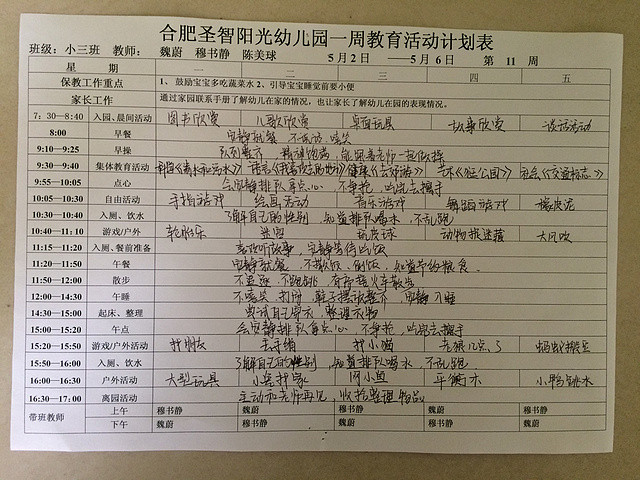 合肥圣智阳光幼儿园一周教育活动计划表
班级：小三班 教师： 魏蔚 穆书静 陈美球 5月2日 ——5月6日 第 11 周
星 期 一 二 三 四 五
保教工作重点 1、鼓励宝宝多吃蔬菜水 2、引导宝宝睡觉前要小便
家长工作 通过家园联系手册了解幼儿在家的情况，也让家长了解幼儿在园的表现情况。
7：30—8:40 入园、晨间活动 图书欣赏 儿歌欣赏 桌面玩具 故事欣赏 谈话活动
8:00 早餐 安静就餐 不说话
9:10—9:25 早操
9:30—9:40 集体教育活动 《去郊游》 艺术《逛公园》 社会《交通标志》
9:55—10:05 点心 会安静排队拿点心 不争抢，吃完去擦手
10:05—10:30 自由活动 手指游戏 绘画活动 音乐游戏 舞蹈游戏 橡皮泥
10:30—10:40 入厕、饮水 了解自己的性别 知道排队喝水 不乱跑
10:40—11:10 游戏/户外 玩皮球 动物捉迷藏 大风吹
11:15—11:20 入厕、餐前准备 喜欢听故事，安静等待吃饭
11:20—11:50 午餐 安静就餐 知道节约粮食。
11:50—12:00 散步
12:00—14:30 午睡 鞋子摆放整齐 安静入睡
14:30—15:00 起床、整理 尝试自己穿衣 整理衣物
15:00—15:20 午点 会安静排队拿点心 不争抢，吃完去擦手
15:20—15:50 游戏/户外活动 找朋友 找小猫 老狼几点了 蚂蚁搬豆
15:50—16:00 入厕、饮水 了解自己的性别 知道排队喝水，不乱跑
16:00—16:30 户外活动 大型玩具 小兔找家 网小鱼 平衡木 小鸭跳水
16:30—17:00 离园活动 主动和老师再见，收拾整理物品
带班教师 上午 穆书静 魏蔚 穆书静 魏蔚 穆书静
下午 魏蔚 穆书静 魏蔚 穆书静 魏蔚